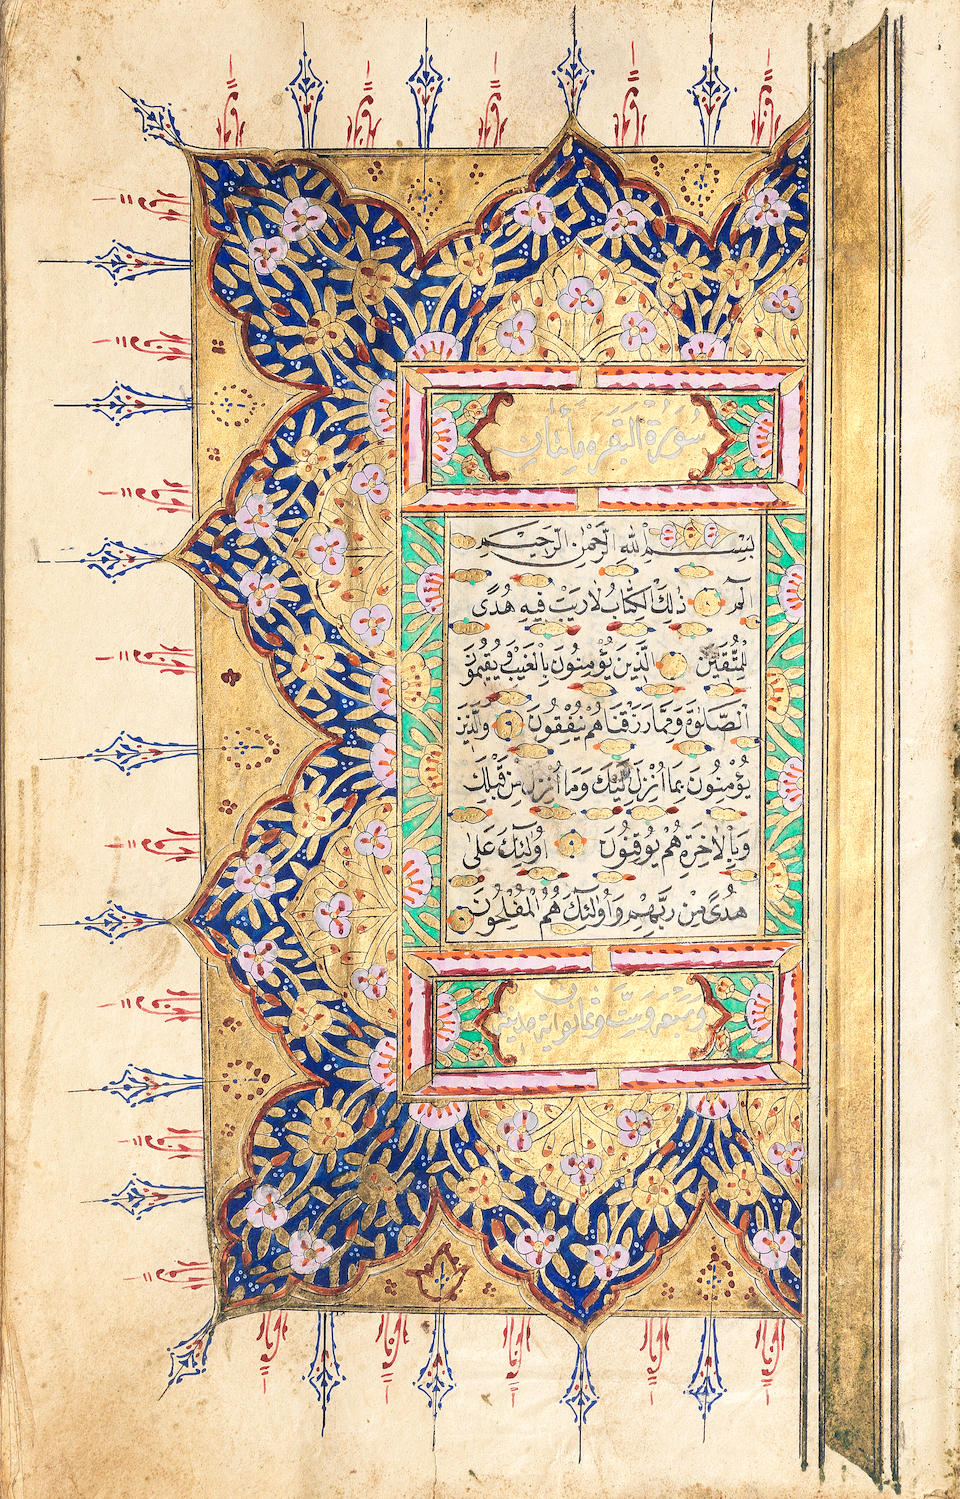 سُورَةُ الْبَقَرَه مِأَتَانِ
بِسْمِ اللّٰهِ الرَّحْمٰنِ الرَّحِيمِ
الٓمٓ ذٰلِكَ الْكِتَابُ لَا رَيْبَ فِيهِ هُدًى
لِلْمُتَّقِينَ الَّذِينَ يُؤْمِنُونَ بِالْغَيْبِ وَيُقِيمُونَ
الصَّلٰوةَ وَمِمَّا رَزَقْنَاهُمْ يُنْفِقُونَ وَالَّذِينَ
يُؤْمِنُونَ بِمَا اُنْزِلَ اِلَيْكَ وَمَا اُنْزِلَ مِنْ قَبْلِكَ
وَبِالْاٰخِرَةِ هُمْ يُوقِنُونَ اُولٰٓئِكَ عَلٰى
هُدًى مِنْ رَبِّهِمْ وَاُولٰٓئِكَ هُمُ الْمُفْلِحُونَ